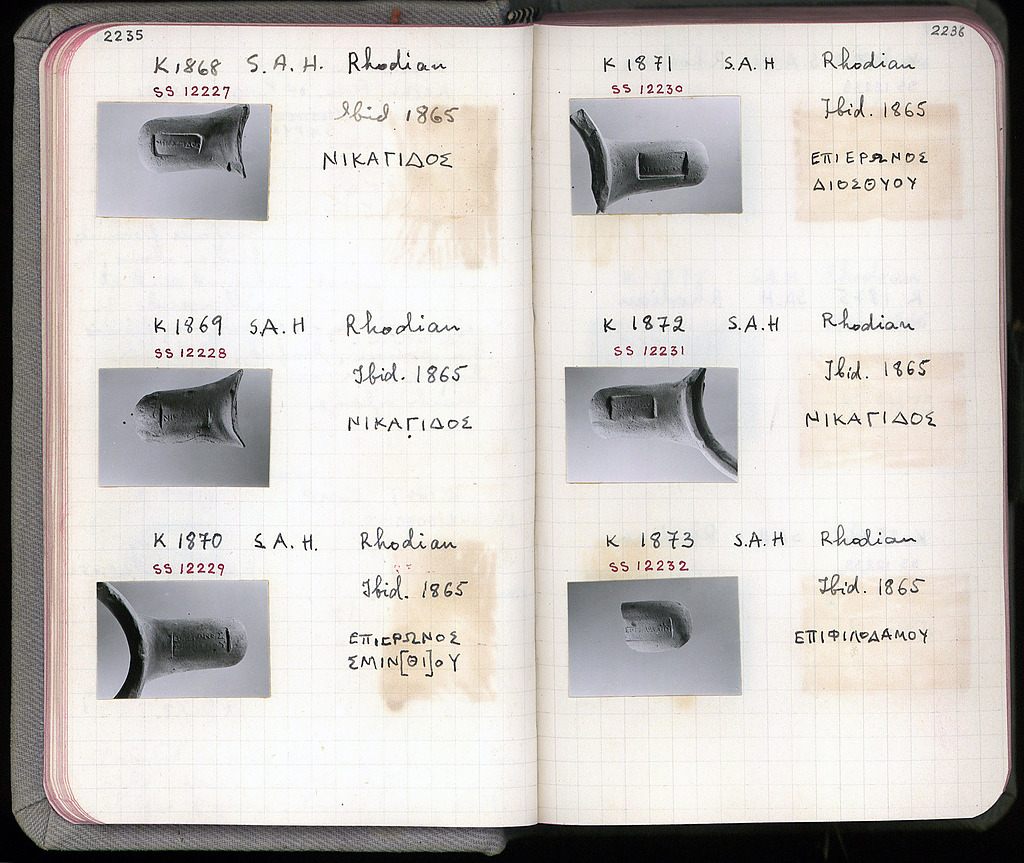 2235
K 1868 S.A.H. Rhodian
SS 12227
Ibid 1865
ΝΙΚΑΓΙΔΟΣ
K 1869 S.A.H Rhodian
SS 12228
Ibid. 1865
ΝΙΚΑΓΙΔΟΣ
K 1870 S.A.H. Rhodian
SS 12229
Ibid. 1865
ΕΠΙΕΡΩΝΟΣ
ΣΜΙΝ[ΘΙ]ΟΥ
2236
K 1871 S.A.H Rhodian
SS 12230
Ibid. 1865
ΕΠΙΕΡΩΝΟΣ
ΔΙΟΣΘΥΟΥ
K 1872 S.A.H Rhodian
SS 12231
Ibid. 1865
ΝΙΚΑΓΙΔΟΣ
K 1873 S.A.H Rhodian
SS 12232
Ibid. 1865
ΕΠΙΦΙΛΟΔΑΜΟΥ